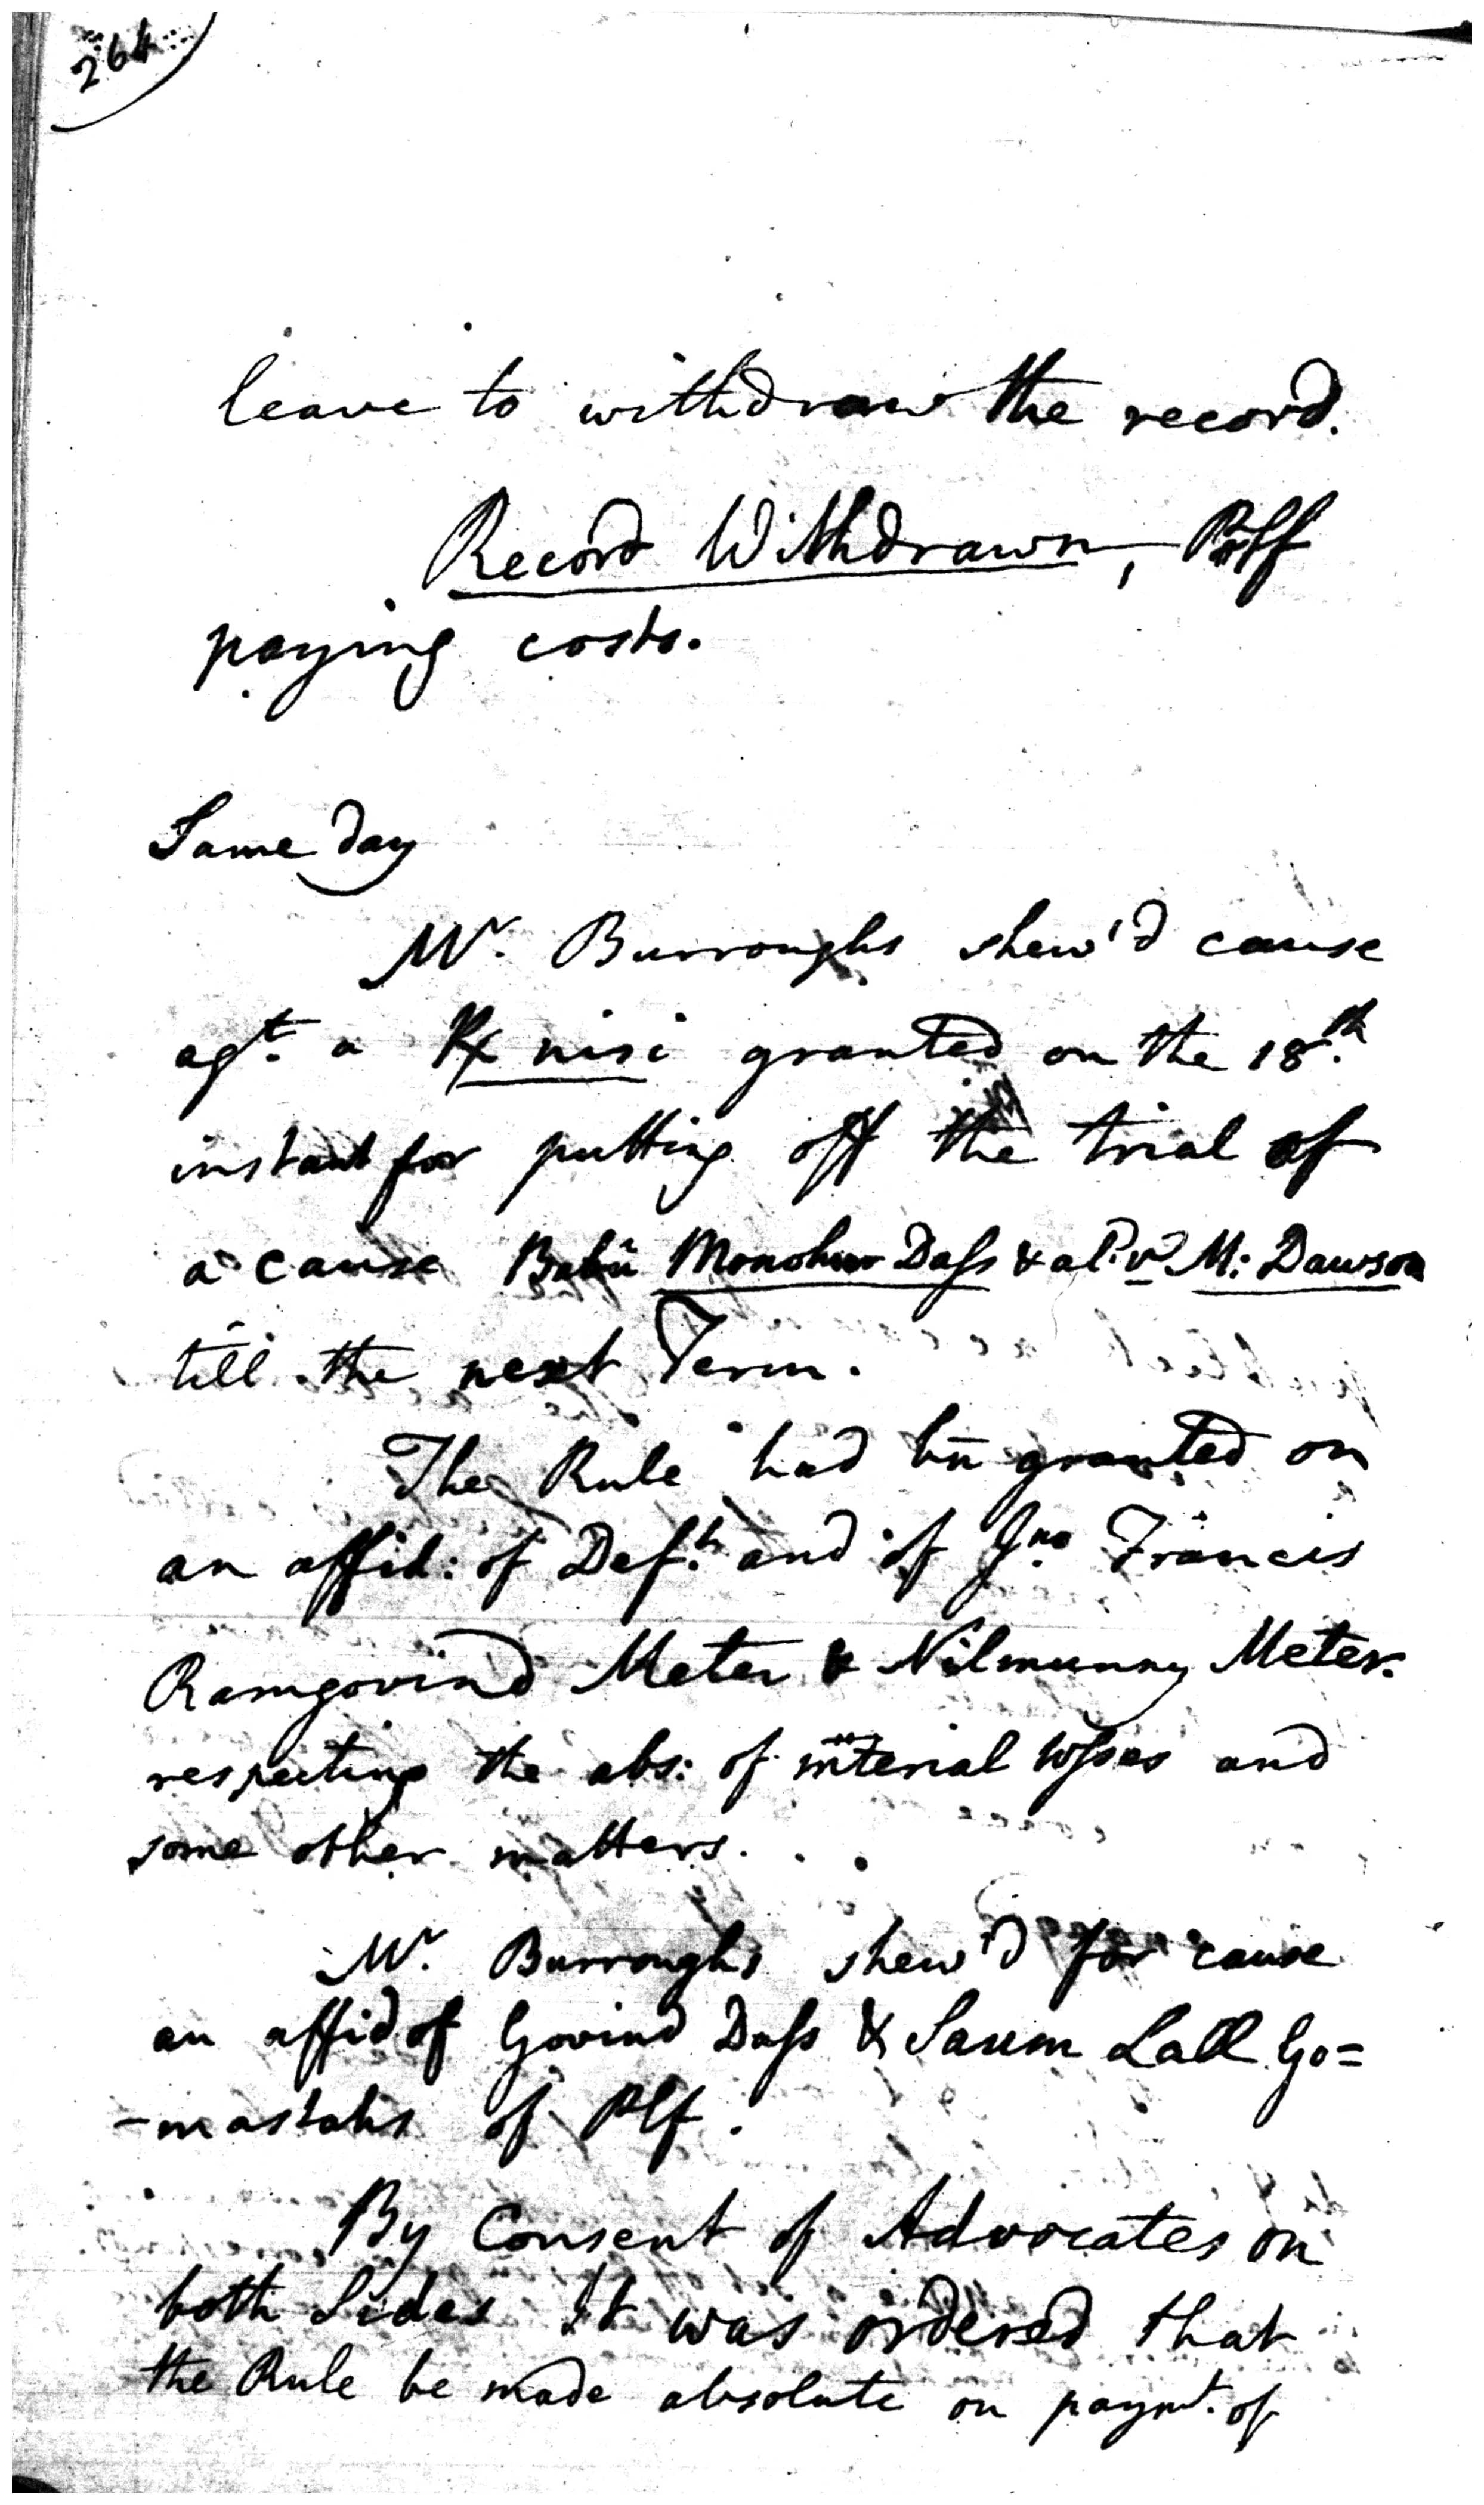 264
leave to withdraw the record.
Record Withdrawn, Plff
paying costs.
Same day
Mr. Burroughs shew'd cause
agt. a Rx nisi granted on the 18th
instant for putting off the trial of
a cause Babū Monohur Dass & al. v. M: Dawson
till the next Term.
The Rule had bn̄ granted on
an affid: of Deft. and of Jno Francis
Ramgovind Meter & Nilmunny Meter
respecting the abs: of mterial wsses and
some other matters.
Mr. Burroughs shew'd for cause
an affid of Govind Dass & Saum Lall Go=
-mastahs of Plf.
By Consent of Advocates on
both Sides It was ordered that
the Rule be made absolute on paymt. of